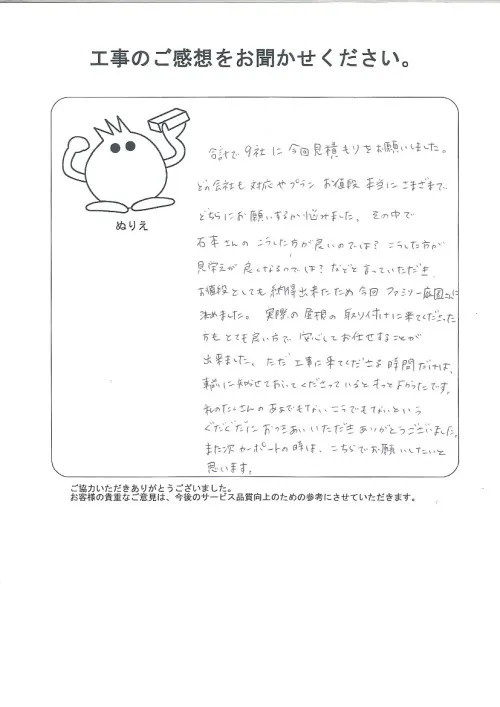 工事のご感想をお聞かせください。
ぬりえ
合計で9社に今回見積もりをお願いしました。
どの会社も対応やプラン お値段 本当にさまざまで、
どちらにお願いするか悩みました。その中で
さんの こうした方が良いのでは? こうした方が
見栄えが良くなるのでは? などと言っていただき
お値段としても納得出来たため今回ファミリー庭園さんに
決めました。実際の屋根の取り付けに来てくださった
方もとても良い方で 安心してお任せすることが
出来ました。ただ工事に来てくださる時間だけは、
事前に知らせておいてくださっているともっとよかったです。
私のたくさんのああでもないこうでもないという
ぐだぐだにおつきあいいただきありがとうございました。
また次カーポートの時は、こちらでお願いしたいと
思います。
ご協力いただきありがとうございました。
お客様の貴重なご意見は、今後のサービス品質向上のための参考にさせていただきます。